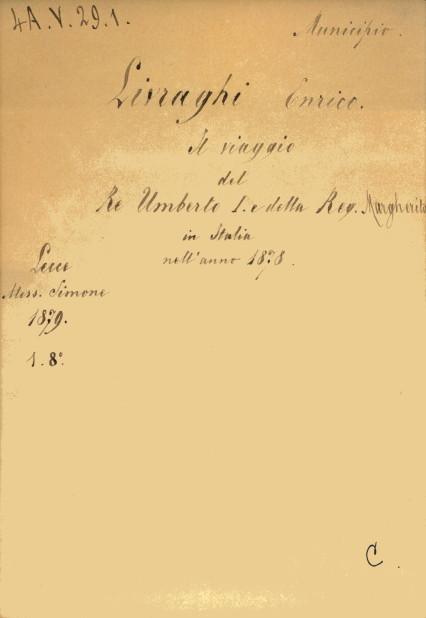 4A.V.29.1.
Municipio.
Livraghi Enrico.
Il viaggio
del
Re Umberto I. e della Reg. Margherita
in Italia
nell'anno 1878.
Lecce
Mess. Simone
1879.
1. 8°.
C.